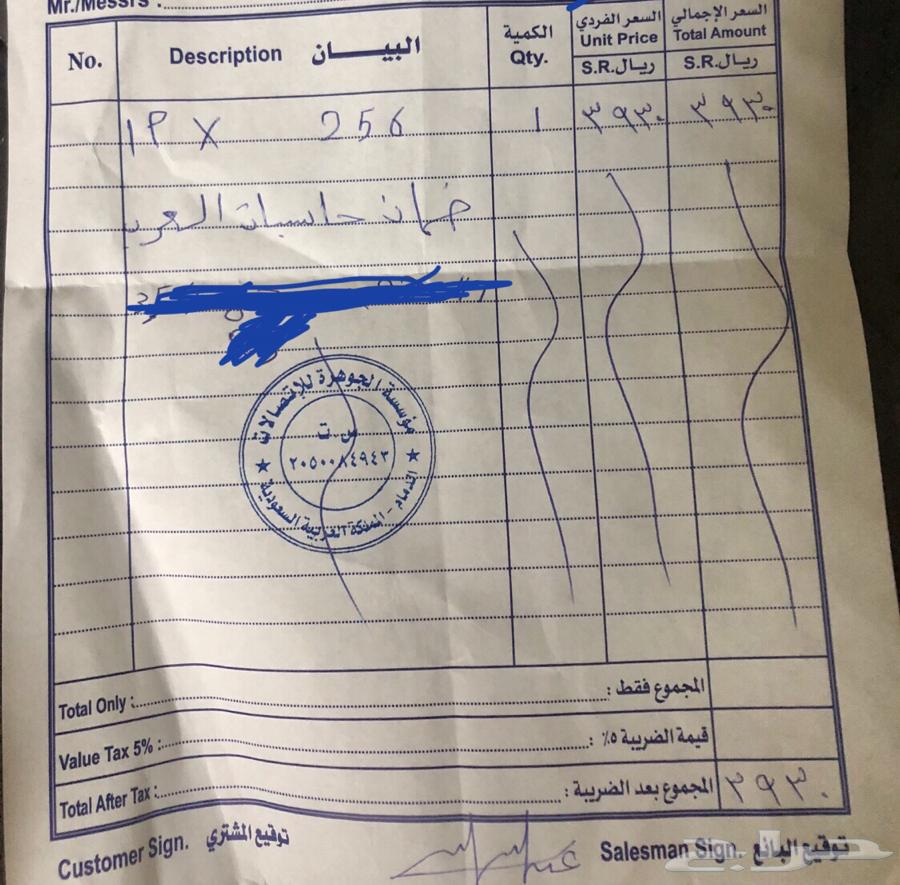 Mr./Messrs :
No. Description البيـــــان الكمية Qty. السعر الفردي Unit Price ريـال.S.R السعر الإجمالي Total Amount ريـال.S.R
IP X 256 1 ٣٩٣٠ ٣٩٣٠
ضمان حاسبات العرب
مؤسسة الجوهرة للإتصالات
س ت
٢٠٥٠٠٨٤٩٤٣
الدمام - المملكة العربية السعودية
Total Only : المجموع فقط :
Value Tax 5% : قيمة الضريبة ٥٪ :
Total After Tax : المجموع بعد الضريبة : ٣٩٣٠
Customer Sign. توقيع المشتري Salesman Sign. توقيع البائع
حراج